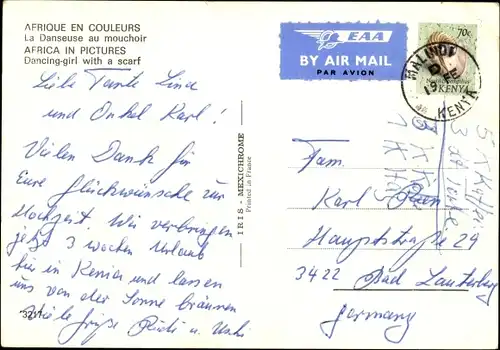 AFRIQUE EN COULEURS
La Danseuse au mouchoir
AFRICA IN PICTURES
Dancing-girl with a scarf
Liebe Tante Lina
und Onkel Karl!
Vielen Dank für
Eure Glückwünsche zur
Hochzeit. Wir verbringen
jetzt 3 Wochen Urlaub
hier in Kenia und lassen
uns von der Sonne bräunen
Viele Grüße Rudi u. Uschi
3217
IRIS - MEXICHROME
Printed in France
EAA
BY AIR MAIL
PAR AVION
70c
KENYA
MALINDI
KENYA
Fam.
Karl
Hauptstraße 24
3422 Bad Lauterberg
Germany